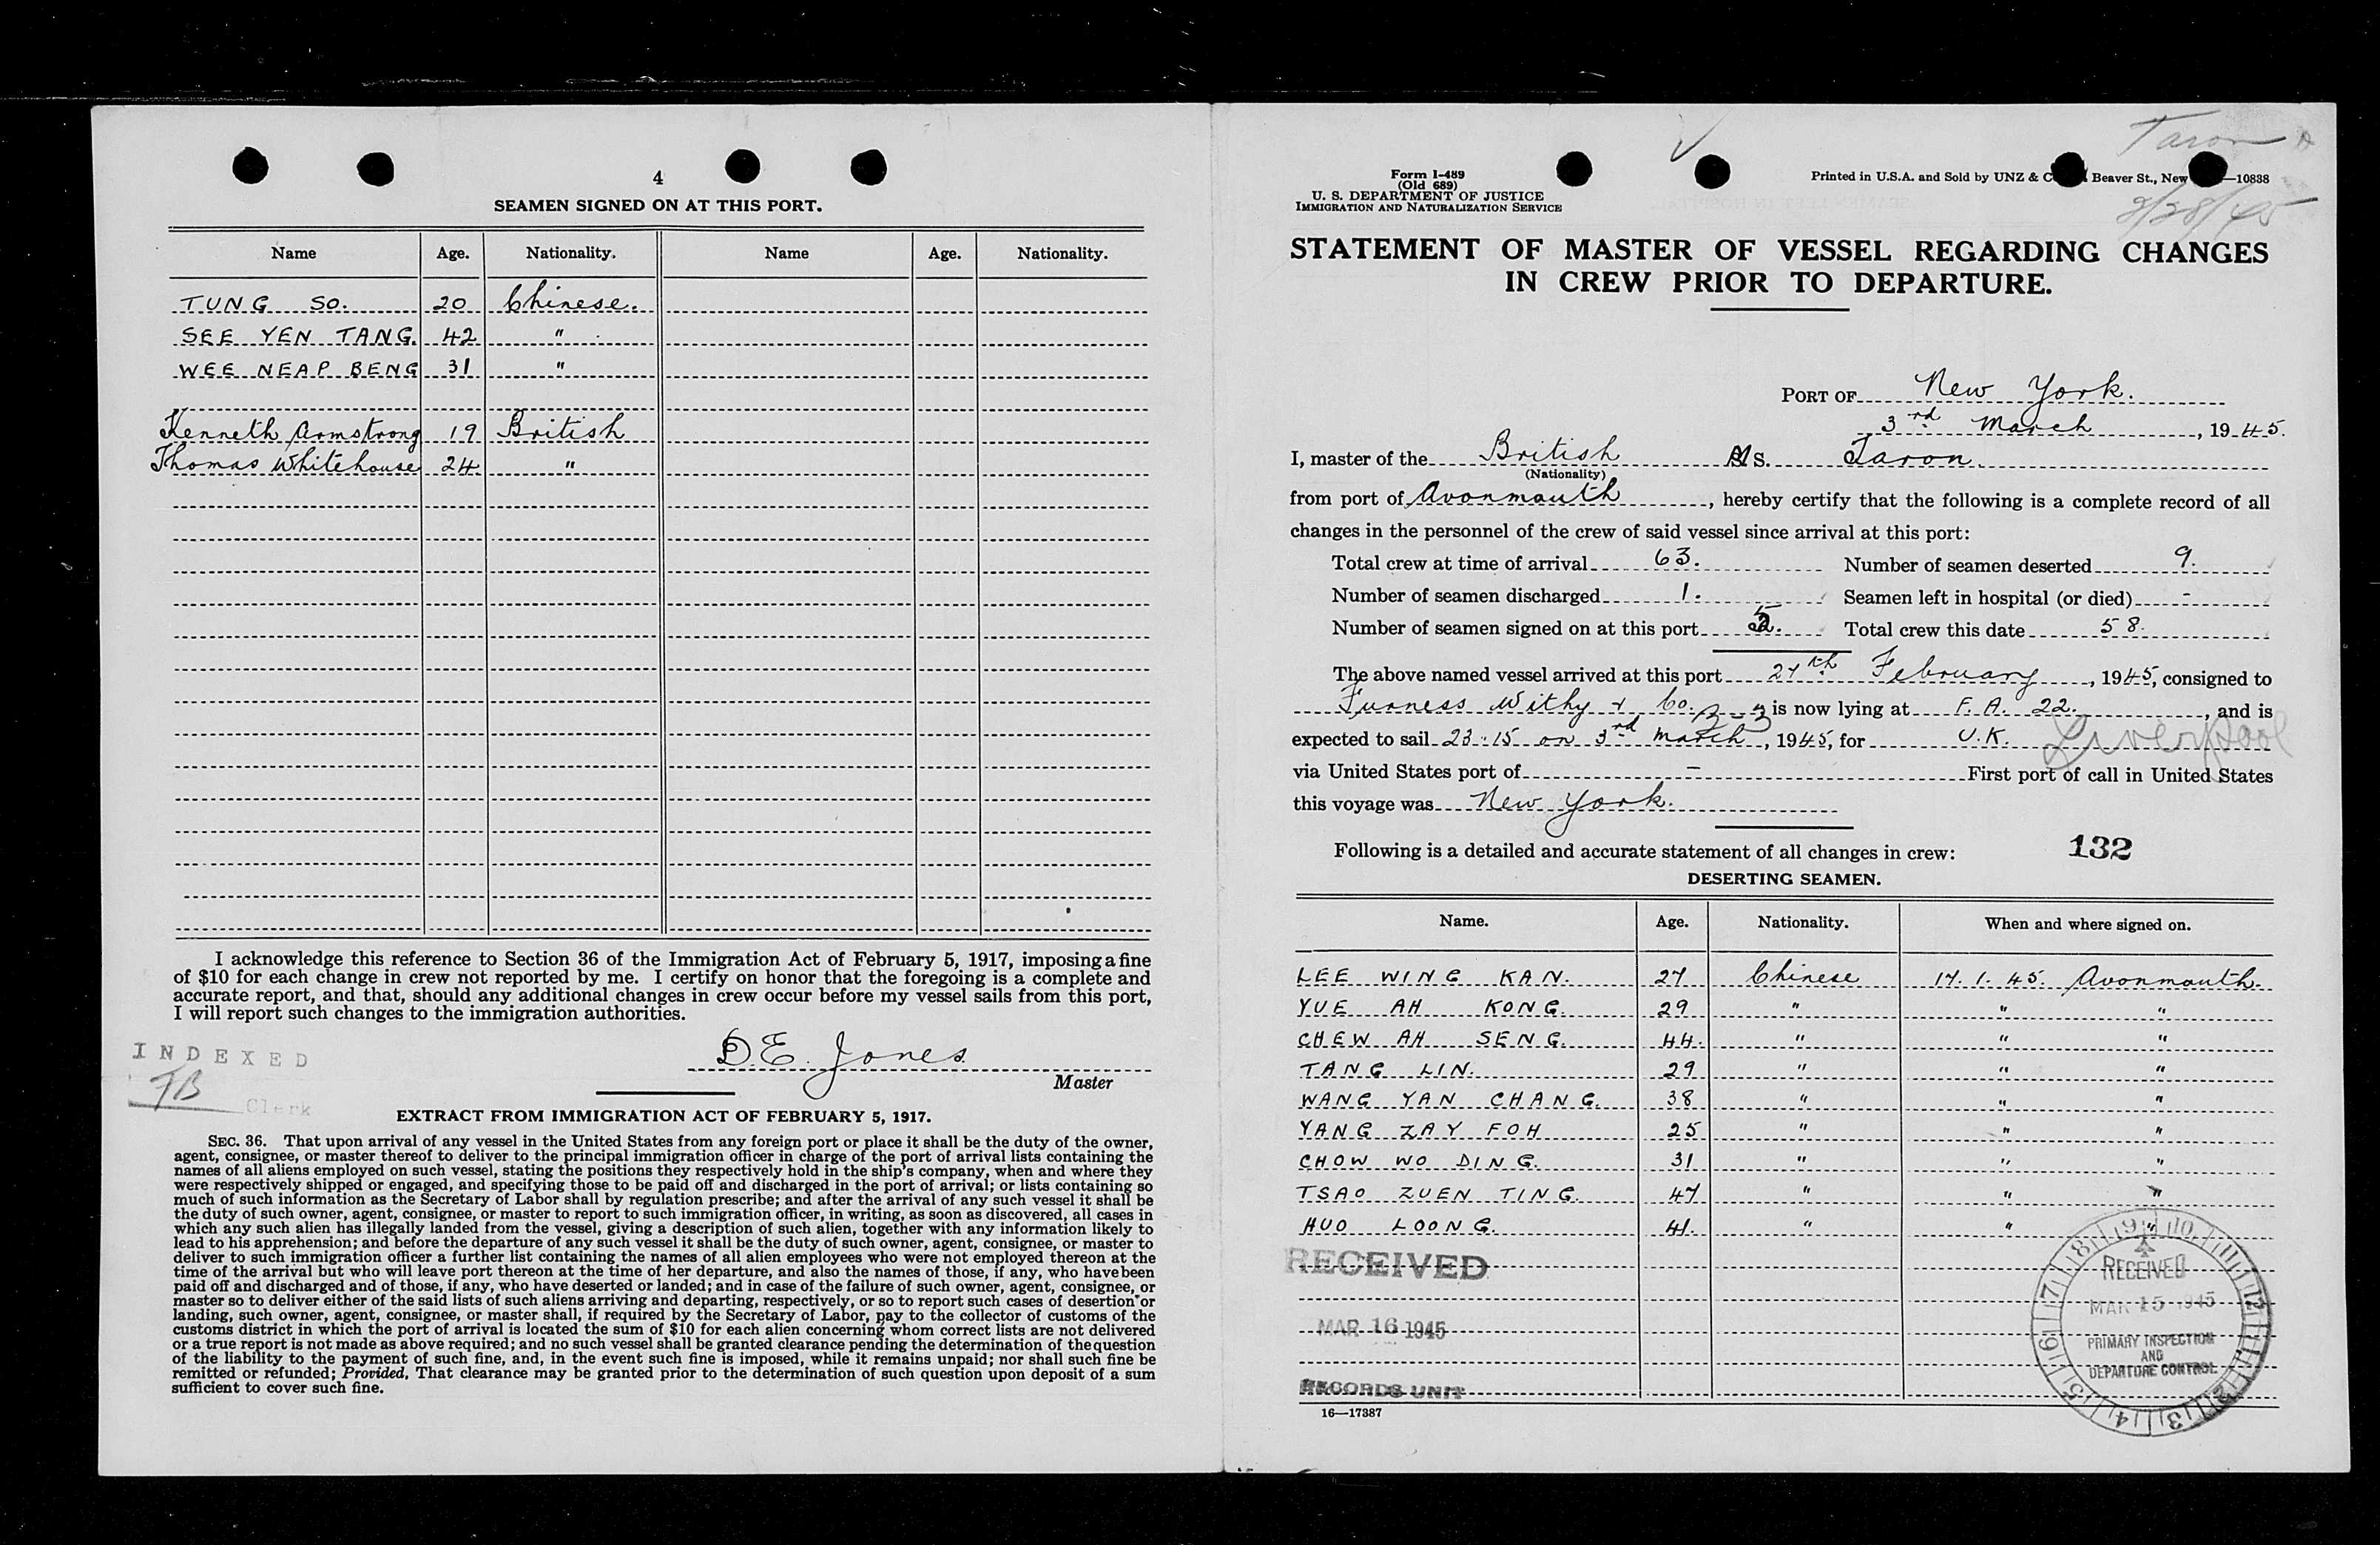 4
SEAMEN SIGNED ON AT THIS PORT.
Name Age. Nationality. Name Age. Nationality.
TUNG SO. 20 Chinese.
SEE YEN TANG. 42 "
WEE NEAP BENG 31 "
Kenneth Armstrong 19 British
Thomas Whitehouse 24 "
I acknowledge this reference to Section 36 of the Immigration Act of February 5, 1917, imposing a fine
of $10 for each change in crew not reported by me. I certify on honor that the foregoing is a complete and
accurate report, and that, should any additional changes in crew occur before my vessel sails from this port,
I will report such changes to the immigration authorities.
INDEXED
D.E. Jones
Master
FB
Clerk
EXTRACT FROM IMMIGRATION ACT OF FEBRUARY 5, 1917.
SEC. 36. That upon arrival of any vessel in the United States from any foreign port or place it shall be the duty of the owner,
agent, consignee, or master thereof to deliver to the principal immigration officer in charge of the port of arrival lists containing the
names of all aliens employed on such vessel, stating the positions they respectively hold in the ship's company, when and where they
were respectively shipped or engaged, and specifying those to be paid off and discharged in the port of arrival; or lists containing so
much of such information as the Secretary of Labor shall by regulation prescribe; and after the arrival of any such vessel it shall be
the duty of such owner, agent, consignee, or master to report to such immigration officer, in writing, as soon as discovered, all cases in
which any such alien has illegally landed from the vessel, giving a description of such alien, together with any information likely to
lead to his apprehension; and before the departure of any such vessel it shall be the duty of such owner, agent, consignee, or master to
deliver to such immigration officer a further list containing the names of all alien employees who were not employed thereon at the
time of the arrival but who will leave port thereon at the time of her departure, and also the names of those, if any, who have been
paid off and discharged and of those, if any, who have deserted or landed; and in case of the failure of such owner, agent, consignee, or
master so to deliver either of the said lists of such aliens arriving and departing, respectively, or so to report such cases of desertion or
landing, such owner, agent, consignee, or master shall, if required by the Secretary of Labor, pay to the collector of customs of the
customs district in which the port of arrival is located the sum of $10 for each alien concerning whom correct lists are not delivered
or a true report is not made as above required; and no such vessel shall be granted clearance pending the determination of the question
of the liability to the payment of such fine, and, in the event such fine is imposed, while it remains unpaid; nor shall such fine be
remitted or refunded; Provided, That clearance may be granted prior to the determination of such question upon deposit of a sum
sufficient to cover such fine.
Taron
Form I-489
(Old 689)
U. S. DEPARTMENT OF JUSTICE
IMMIGRATION AND NATURALIZATION SERVICE
Printed in U.S.A. and Sold by UNZ & C Beaver St., New —10838
2/28/45
STATEMENT OF MASTER OF VESSEL REGARDING CHANGES
IN CREW PRIOR TO DEPARTURE.
PORT OF New York.
3rd March, 1945.
I, master of the British Ms. Taron.
(Nationality)
from port of Avonmouth, hereby certify that the following is a complete record of all
changes in the personnel of the crew of said vessel since arrival at this port:
Total crew at time of arrival 63. Number of seamen deserted 9.
Number of seamen discharged 1. Seamen left in hospital (or died) -
Number of seamen signed on at this port 5. Total crew this date 58.
The above named vessel arrived at this port 27th February, 1945, consigned to
Furness Withy & Co. is now lying at F. A. 22., and is
expected to sail 23.15 on 3rd March, 1945, for U.K. Liverpool
via United States port of - First port of call in United States
this voyage was New York.
Following is a detailed and accurate statement of all changes in crew: 132
DESERTING SEAMEN.
Name. Age. Nationality. When and where signed on.
LEE WING KAN. 27 Chinese 17. 1. 45. Avonmouth.
YUE AH KONG. 29 " " "
CHEW AH SENG. 44. " " "
TANG LIN. 29 " " "
WANG YAN CHANG. 38 " " "
YANG ZAY FOH 25 " " "
CHOW WO DING. 31 " " "
TSAO ZUEN TING. 47 " " "
HUO LOONG. 41. " " "
RECEIVED
MAR 16 1945
RECORDS UNIT
16—17387
RECEIVED
MAR 15 1945
PRIMARY INSPECTION
AND
DEPARTURE CONTROL